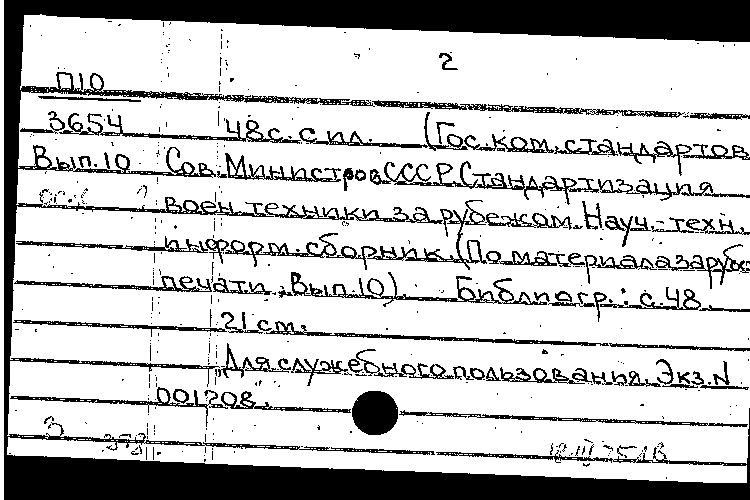 2
П10
3654 48с. с ил. (Гос. ком. стандартов
Вып. 10 Сов. Министров СССР. Стандартизация
воен. техники за рубежом. Науч.-техн.
информ. сборник. (По материала зарубе
печати, Вып. 10). Библиогр.: с. 48.
21 см.
„Для служебного пользования. Экз. N
001208".
3